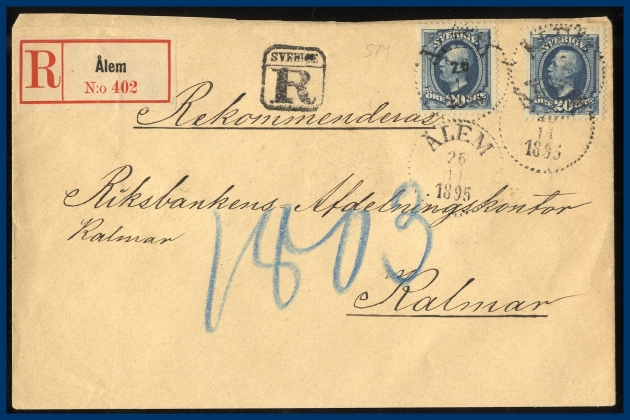 R Ålem
N:o 402
SVERIGE
R
SVERIGE
ÖRE 20 ÖRE
SVERIGE
ÖRE 20 ÖRE
Rekommenderas
ÅLEM
26
11
1895
11
1895
Riksbankens Afdelningskontor
Kalmar
1803
Kalmar